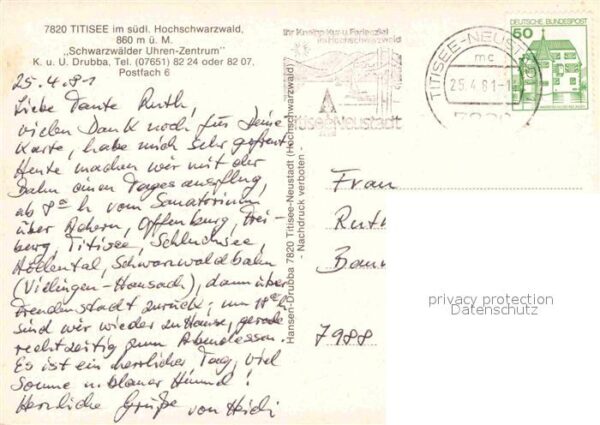 7820 TITISEE im südl. Hochschwarzwald,
860 m ü. M.
„Schwarzwälder Uhren-Zentrum"
K. u. U. Drubba, Tel. (07651) 82 24 oder 82 07,
Postfach 6
25.4.81
Liebe Tante Ruth,
vielen Dank noch für Deine
Karte, habe mich sehr gefreut.
Heute machen wir mit der
Bahn einen Tagesausflug,
ab 8 h vom Sanatorium
über Achern, Offenburg, Frei-
burg, Titisee, Schluchsee,
Höllental, Schwarzwaldbahn
(Villingen-Hausach), dann über
Freudenstadt zurück; um
sind wir wieder zuhause, gerade
rechtzeitig zum Abendessen.
Es ist ein herrlicher Tag, viel
Sonne u. blauer Himmel!
Herzliche Grüße von Heidi
Hansen-Drubba 7820 Titisee-Neustadt (Hochschwarzwald)
- Nachdruck verboten -
Ihr Kneipp-Kur- u. Ferienziel
im Hochschwarzwald
Titisee-Neustadt
TITISEE-NEUSTADT
mc
25.4.81-1
7820
DEUTSCHE BUNDESPOST
50
Frau
Ruth
7988
privacy protection
Datenschutz